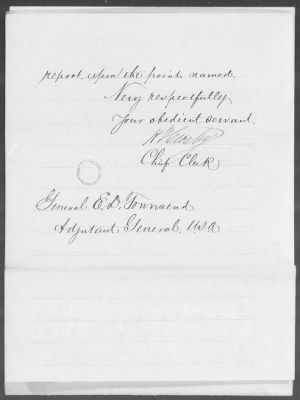 report upon the point named.
Very respectfully
Your obedient servant.
H T Crosby
Chief Clerk
General E. D. Townsend
Adjutant General, U.S.A